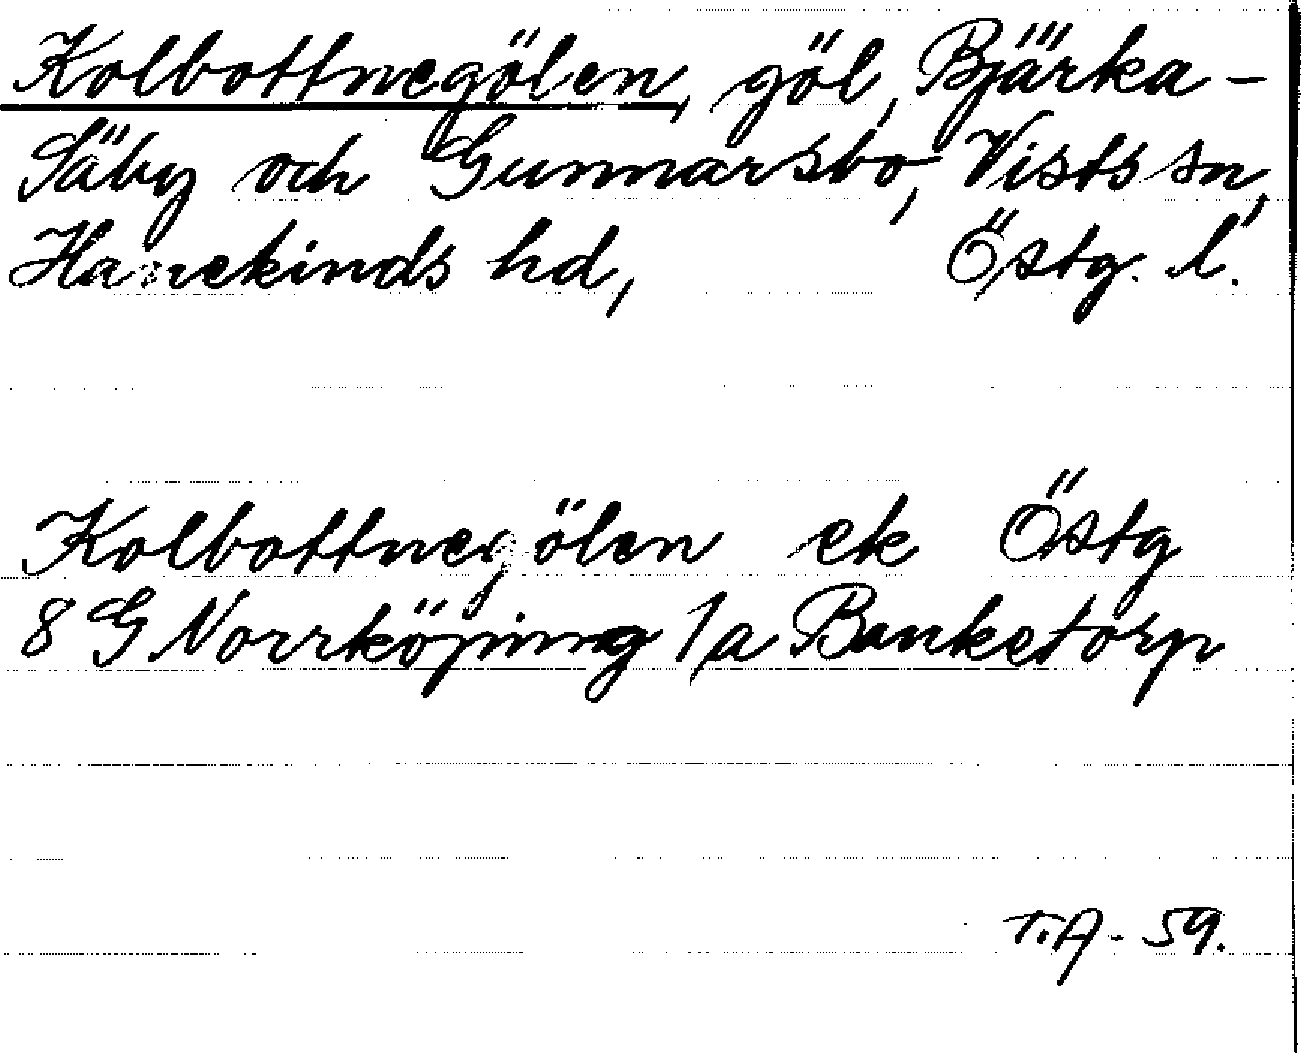 Kolbottnegölen, göl, Bjärka-
Säby och Gunnarsbo, Vists sn,
Hanekinds hd, Östg. l.
Kolbottnegölen ek Östg
8 G Norrköping 1a Banketorp
T.A - 59.